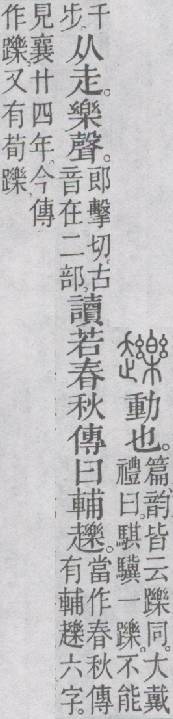 䟏動也。
篇、韵皆云躒同。大戴
禮曰。騏驥一躒。不能
千
步。
从走。樂聲。
郎擊切。古
音在二部。
讀若春秋傳曰輔䟏。
當作春秋傳
有輔䟏六字。
見襄廿四年。今傳
作躒。又有荀躒。